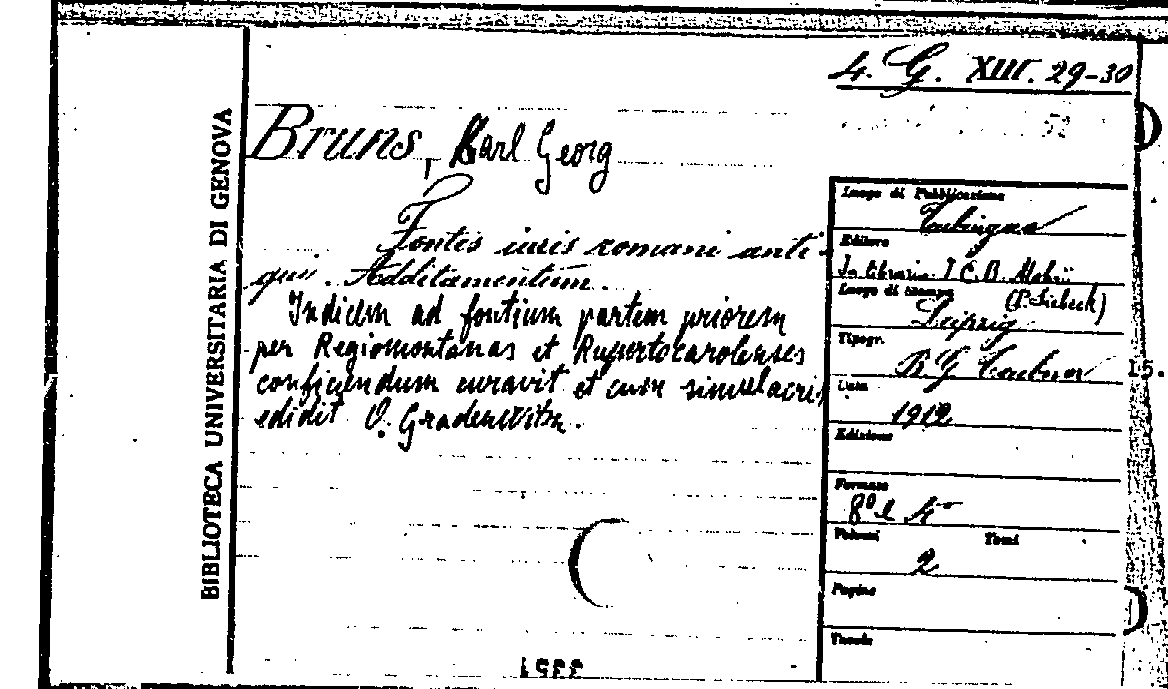 4. G. XIII. 29-30
52
BIBLIOTECA UNIVERSITARIA DI GENOVA
Bruns, Karl Georg
Fontis iuris romani anti-
qui. Additamentum.
Indicem ad fontium partem priorem
per Regiomontanas et Rupertocarolenses
conficiendum curavit et cum simulacris
edidit O. Gradenwitz.
Luogo di Pubblicazione
Tubingae
Editore
In libraria I. C. B. Mohrii
(P. Siebeck)
Luogo di stampa
Leipzig
Tipogr.
B. G. Teubner
15.
Data
1912
Edizione
Formato
8º e 4º
Volumi Tomi
2
Pagine
Tavole